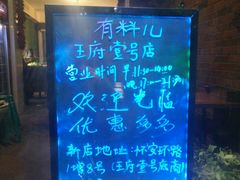 有料儿
王府壹号店
营业时间 早11:30-10:00
欢迎光临
优惠多多
新店地址:怀安环路
1增8号(王府壹号底商)